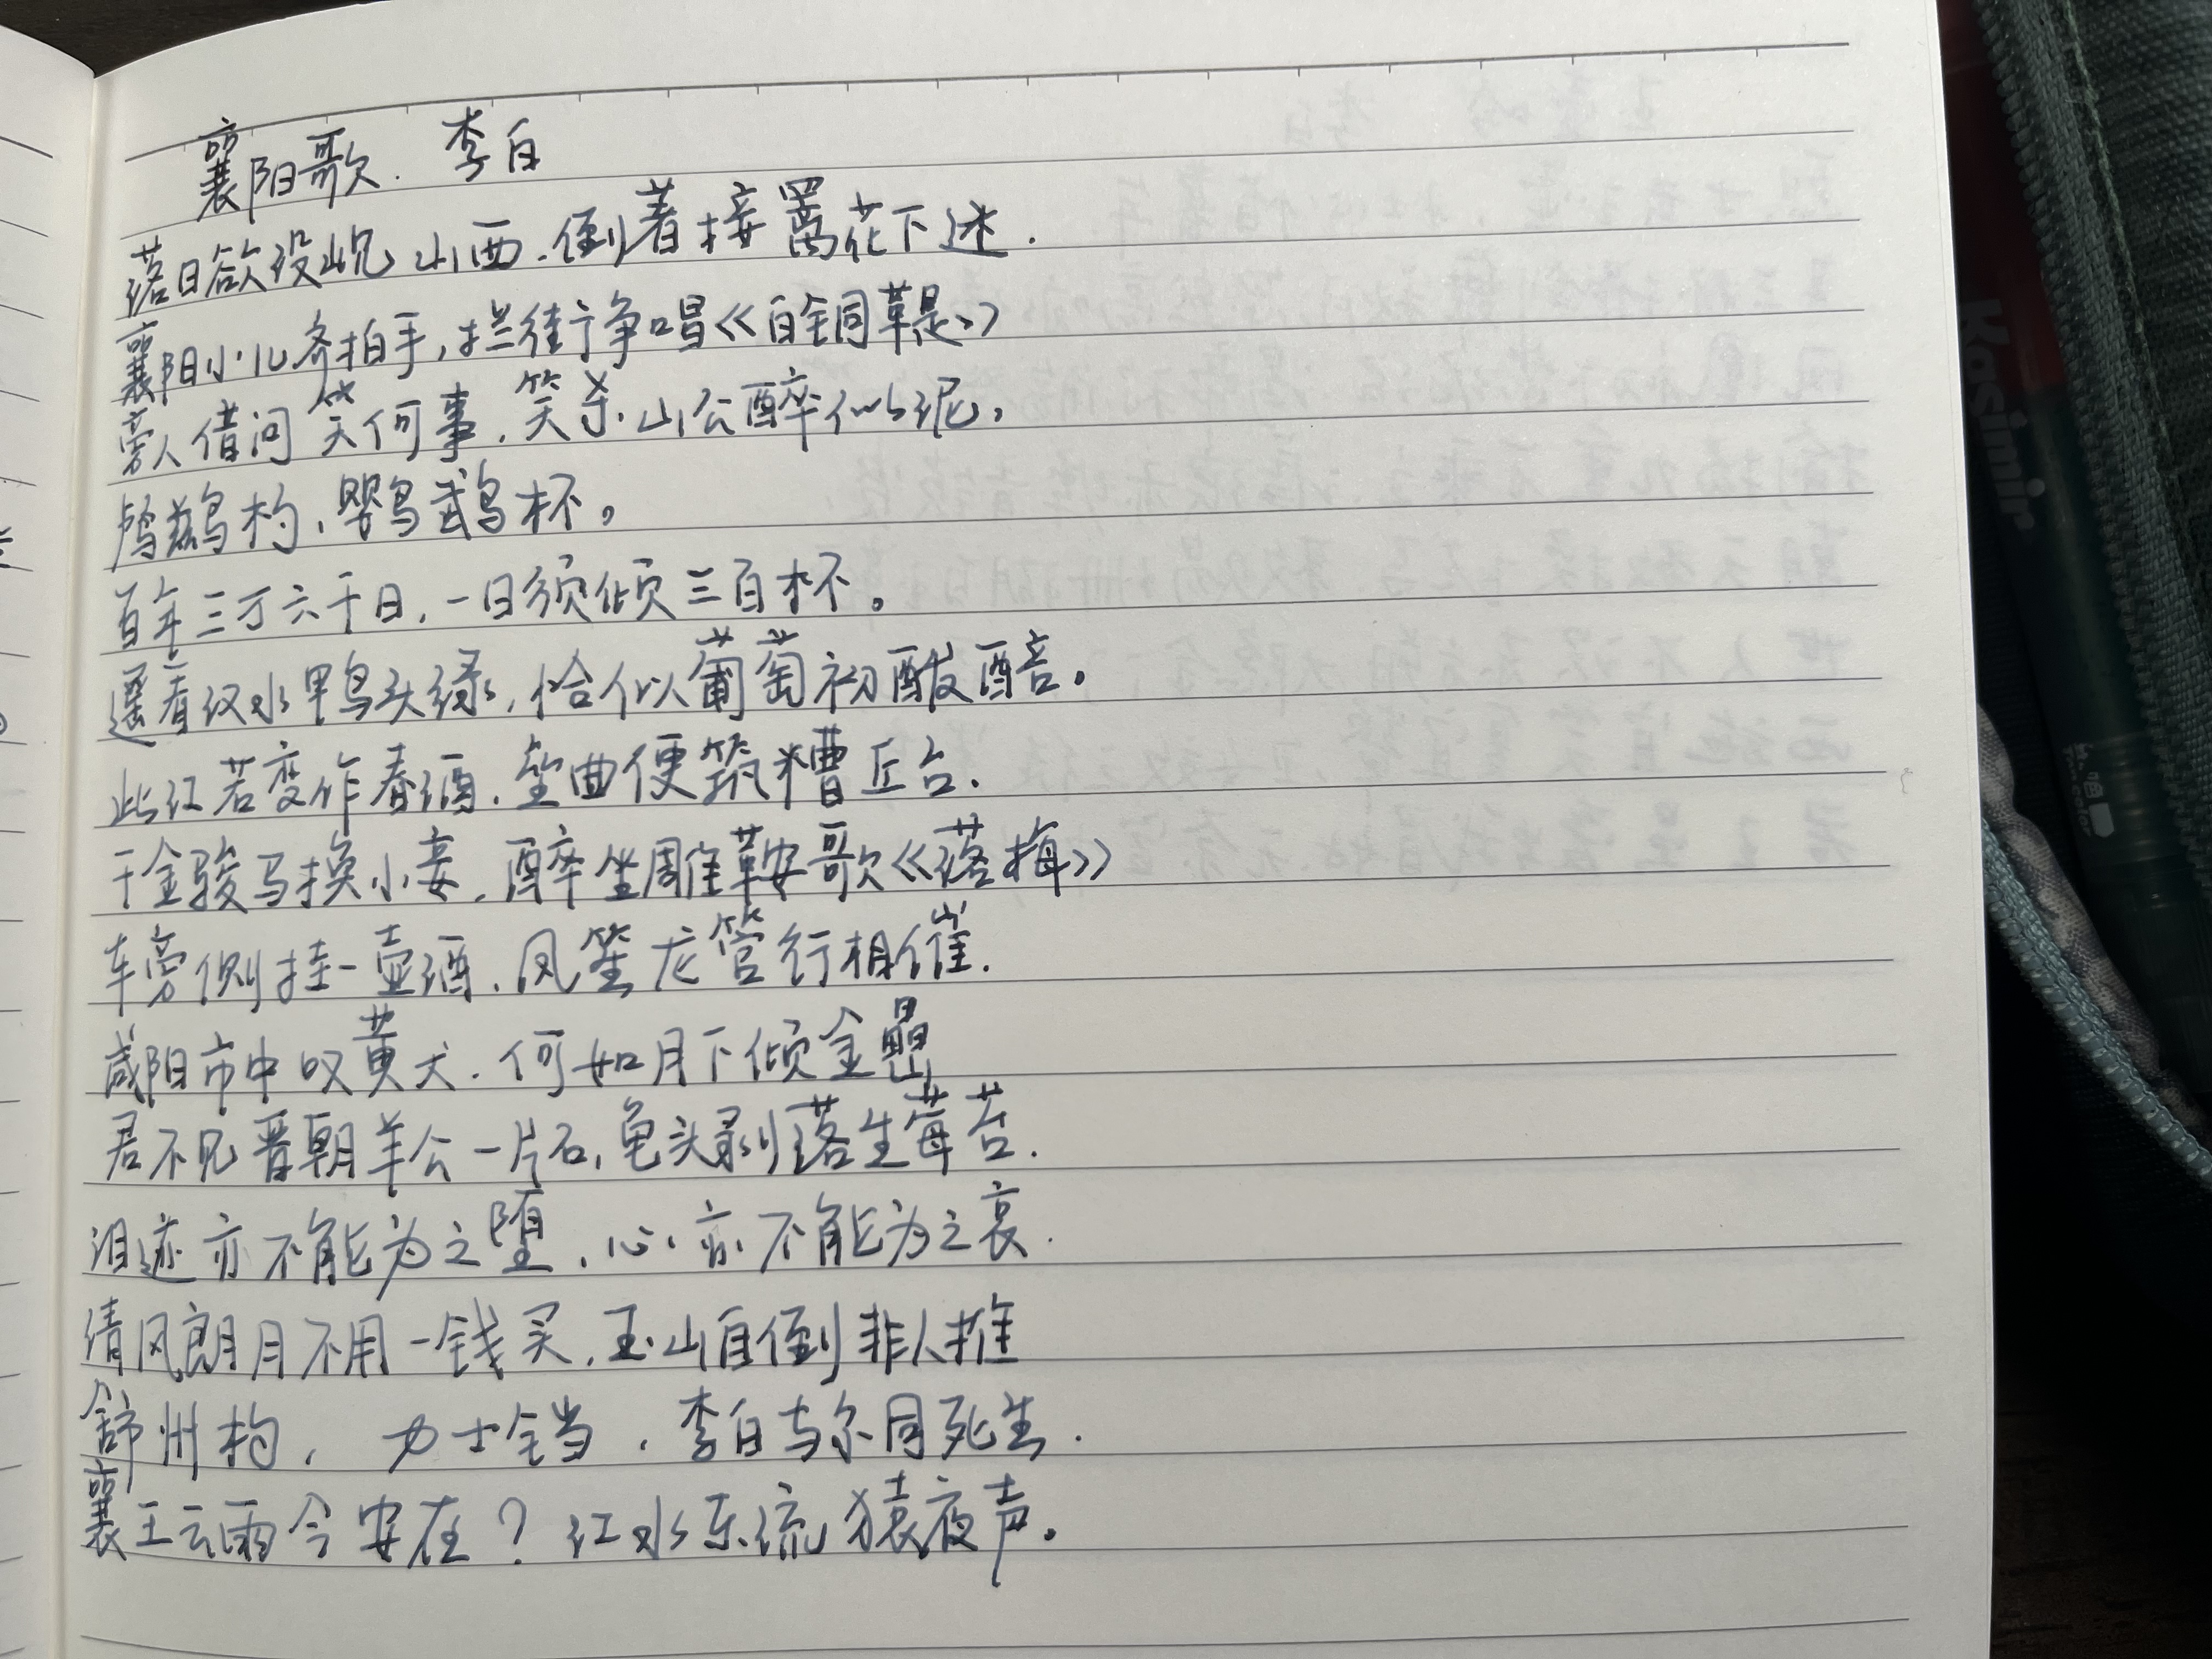 襄阳歌. 李白
落日欲没岘山西.倒着接䍦花下迷.
襄阳小儿齐拍手,拦街争唱《白铜鞮》
旁人借问笑何事.笑杀山公醉似泥。
鸬鹚杓,鹦鹉杯。
百年三万六千日,一日须倾三百杯。
遥看汉水鸭头绿,恰似葡萄初酦醅。
此江若变作春酒.垒曲便筑糟丘台.
千金骏马换小妾.醉坐雕鞍歌《落梅》
车旁侧挂一壶酒.凤笙龙管行相催.
咸阳市中叹黄犬.何如月下倾金罍
君不见晋朝羊公一片石,龟头剥落生莓苔.
泪迹亦不能为之堕,心亦不能为之哀.
清风朗月不用一钱买.玉山自倒非人推
舒州杓, 力士铛.李白与尔同死生.
襄王云雨今安在?江水东流猿夜声。
Kasimir